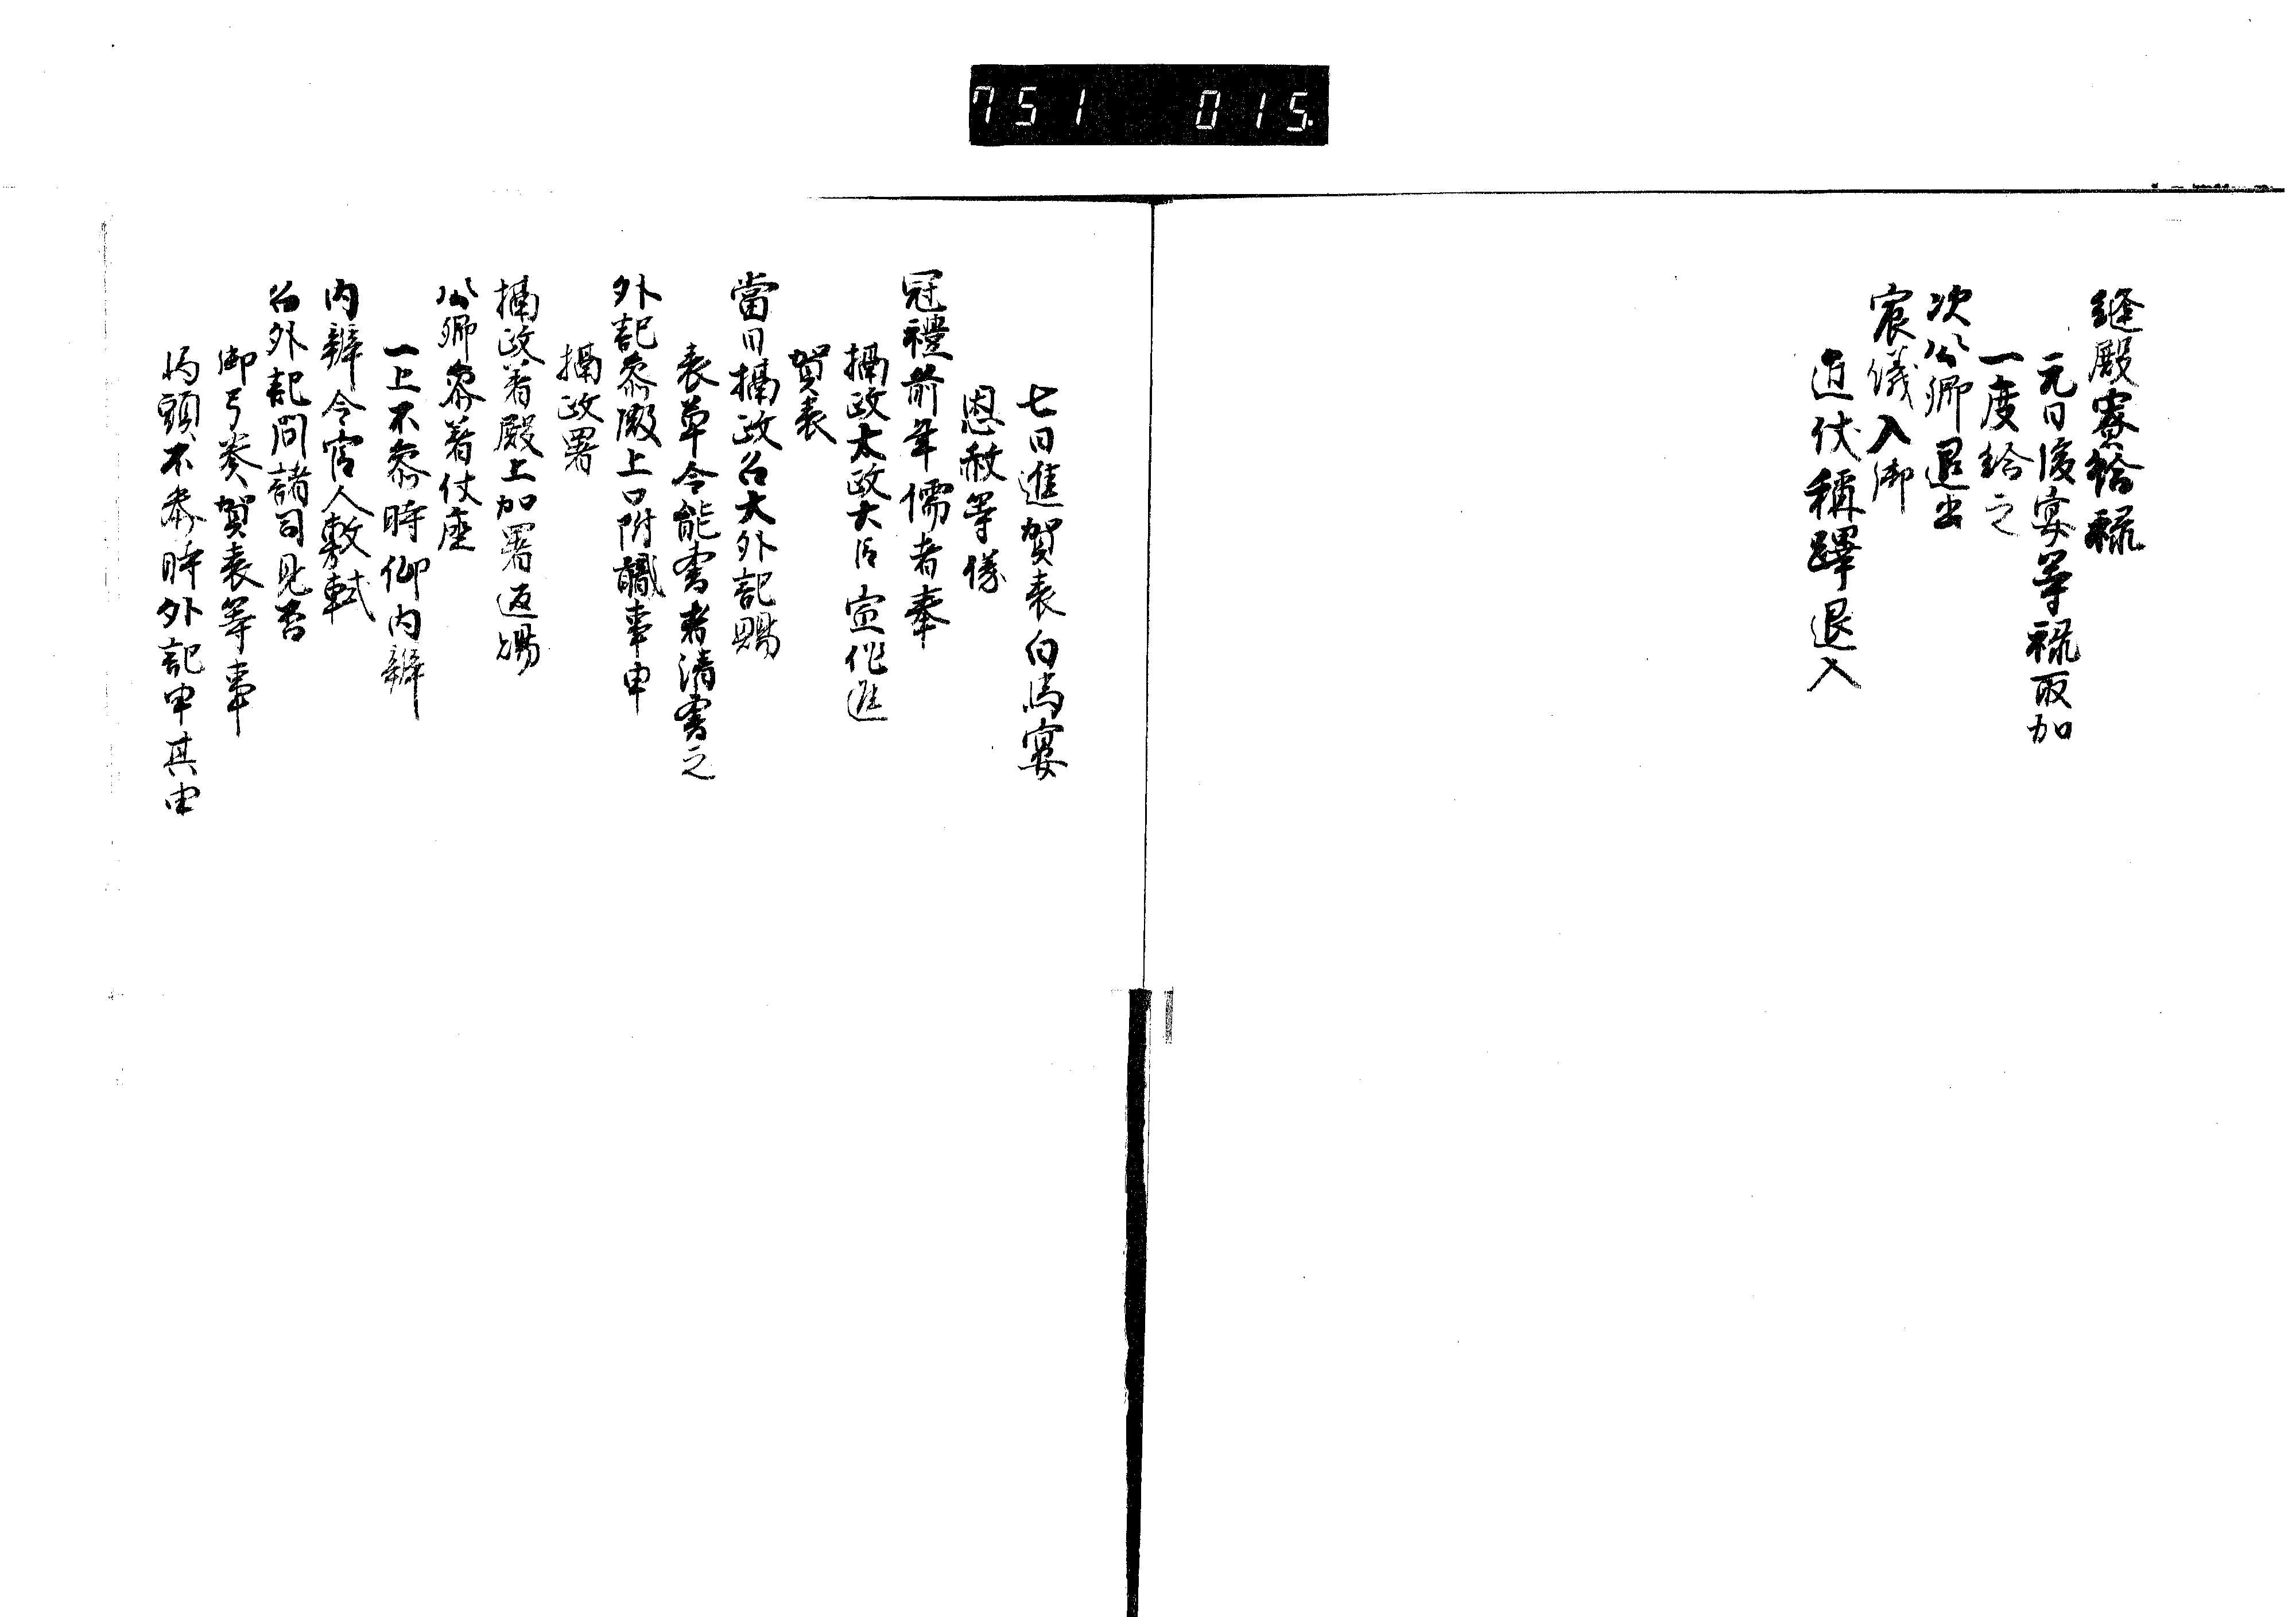 751 015
縫殿寮給祿
元日後宴等祿取加
一度給之
次公卿退出
宸儀入御
近仗稱蹕退入
七日進賀表白馬宴
恩赦等儀
冠禮前年儒者奉
攝政太政大臣宣作進
賀表
當日攝政召大外記賜
表草令能書者清書之
外記參殿上口附職事申
攝政署
攝政著殿上加署返賜
公卿參著仗座
一上不參時仰内辨
内辨令官人敷軾
召外記問諸司見否
御弓奏賀表等事
馬頭不參時外記申其由